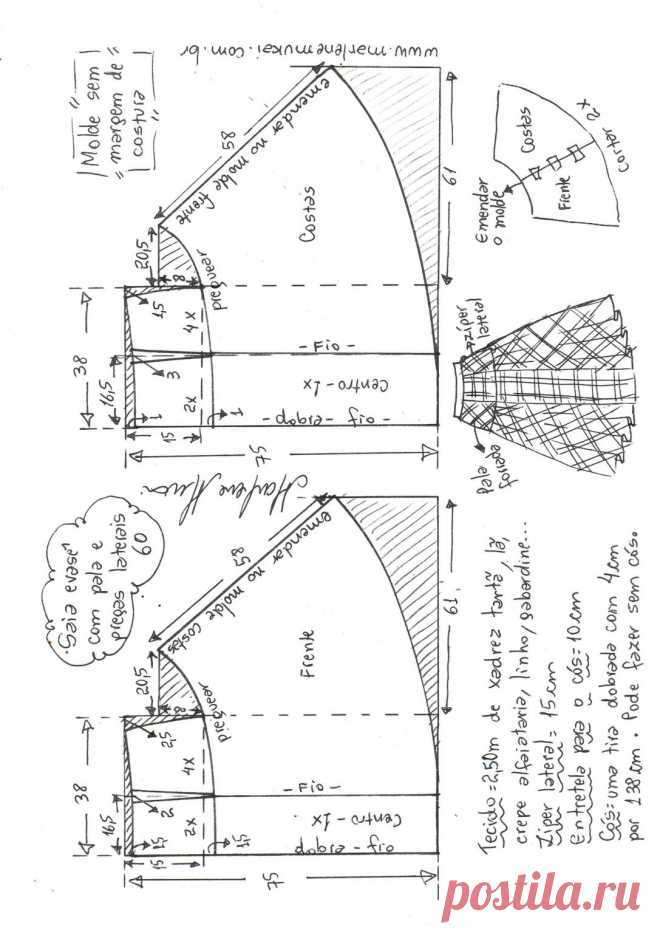 "Saia evasê
com pala e
pregas laterais
60
"Molde sem"
"margem de"
"costura"
www.marlenemukai.com.br
Marlene Mukai
38
16,5
15
75
1,5
2
2,5
1,5
2x
4x
20,5
8
preguear
58
emendar no molde costas
Frente
61
- Fio -
Centro - 1x
dobra - fio
38
16,5
15
75
1
3
1,5
1
2x
4x
20,5
8
preguear
58
emendar no molde frente
Costas
61
- Fio -
Centro - 1x
dobra - fio -
Emendar
o molde
Costas
Frente
Cortar 2x
zíper
lateral
pala
forrada
Tecido = 2,50m de xadrez tartã, lã,
crepe alfaiataria, linho, gabardine...
Zíper lateral = 15cm
Entretela para o cós = 10cm
Cós: uma tira dobrada com 4cm
por 138cm. Pode fazer sem cós.
postila.ru